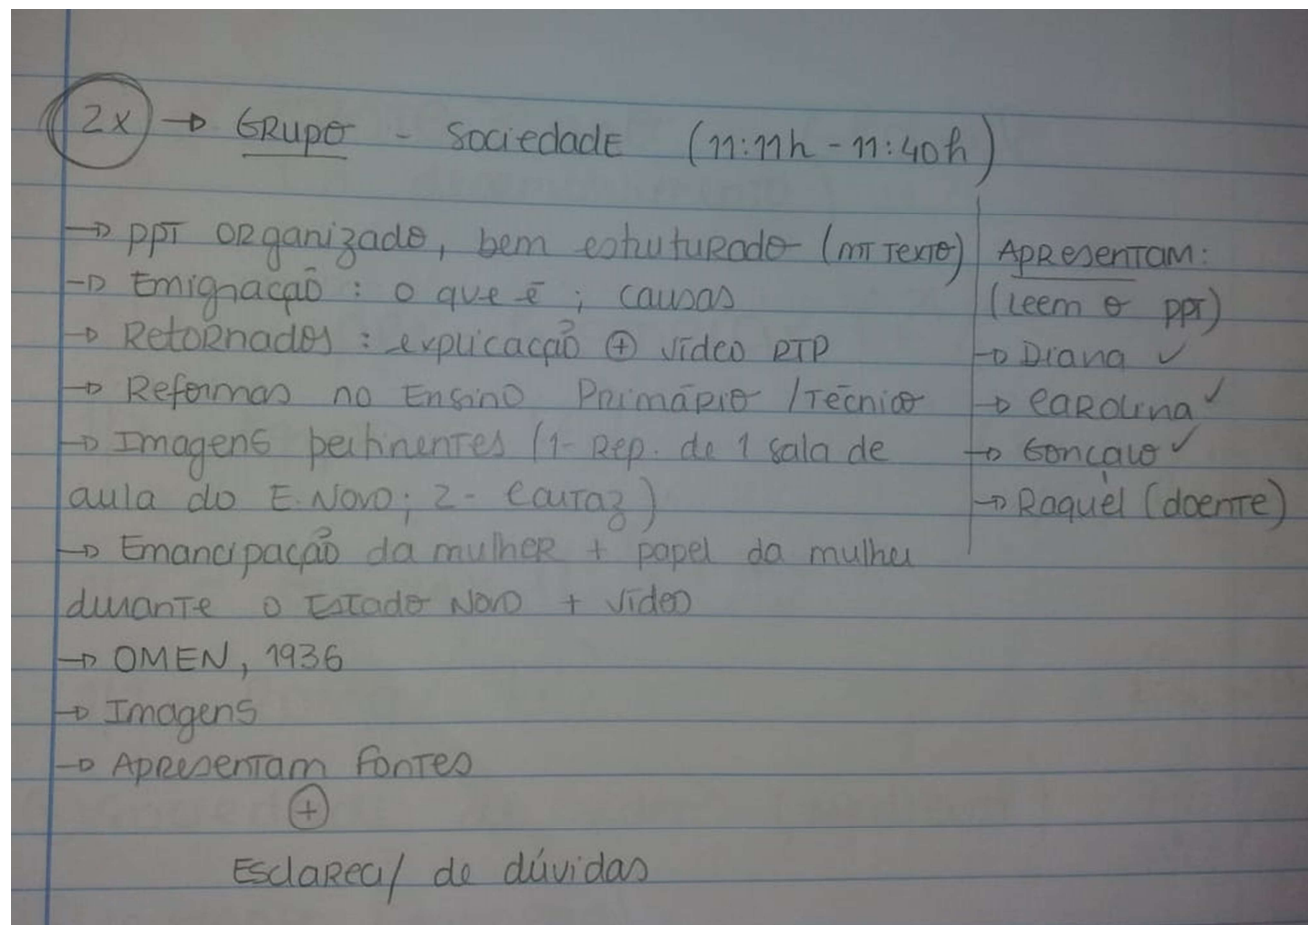 2x → GRUPO - Sociedade (11:11h - 11:40h)
→ PPT ORganizado, bem estruturado (mT Texto)
→ Emigração: o que é; causas
→ RetoRnados: explicação + vídeo RTP
→ Reformas no Ensino Primário / Técnico
→ Imagens pertinentes (1- Rep. de 1 sala de
aula do E. Novo; 2- Cartaz)
→ Emancipação da mulher + papel da mulher
durante o Estado Novo + vídeo
→ OMEN, 1936
→ Imagens
→ Apresentam Fontes
+
Esclareci/ de dúvidas
Apresentam:
(Leem o ppt)
→ Diana ✓
→ Carolina ✓
→ Gonçalo ✓
→ Raquel (doente)